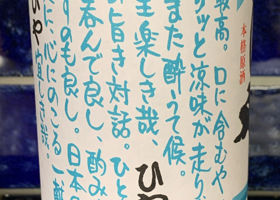 本格原酒
最高。口に含むや
リッと涼味が走り
また酔うて候。
至楽しき哉
ひや
旨き対話。ひと
呑んで良し 酌み
りも良し。日本
に 心にのこる一献
ひや 宜しき哉。